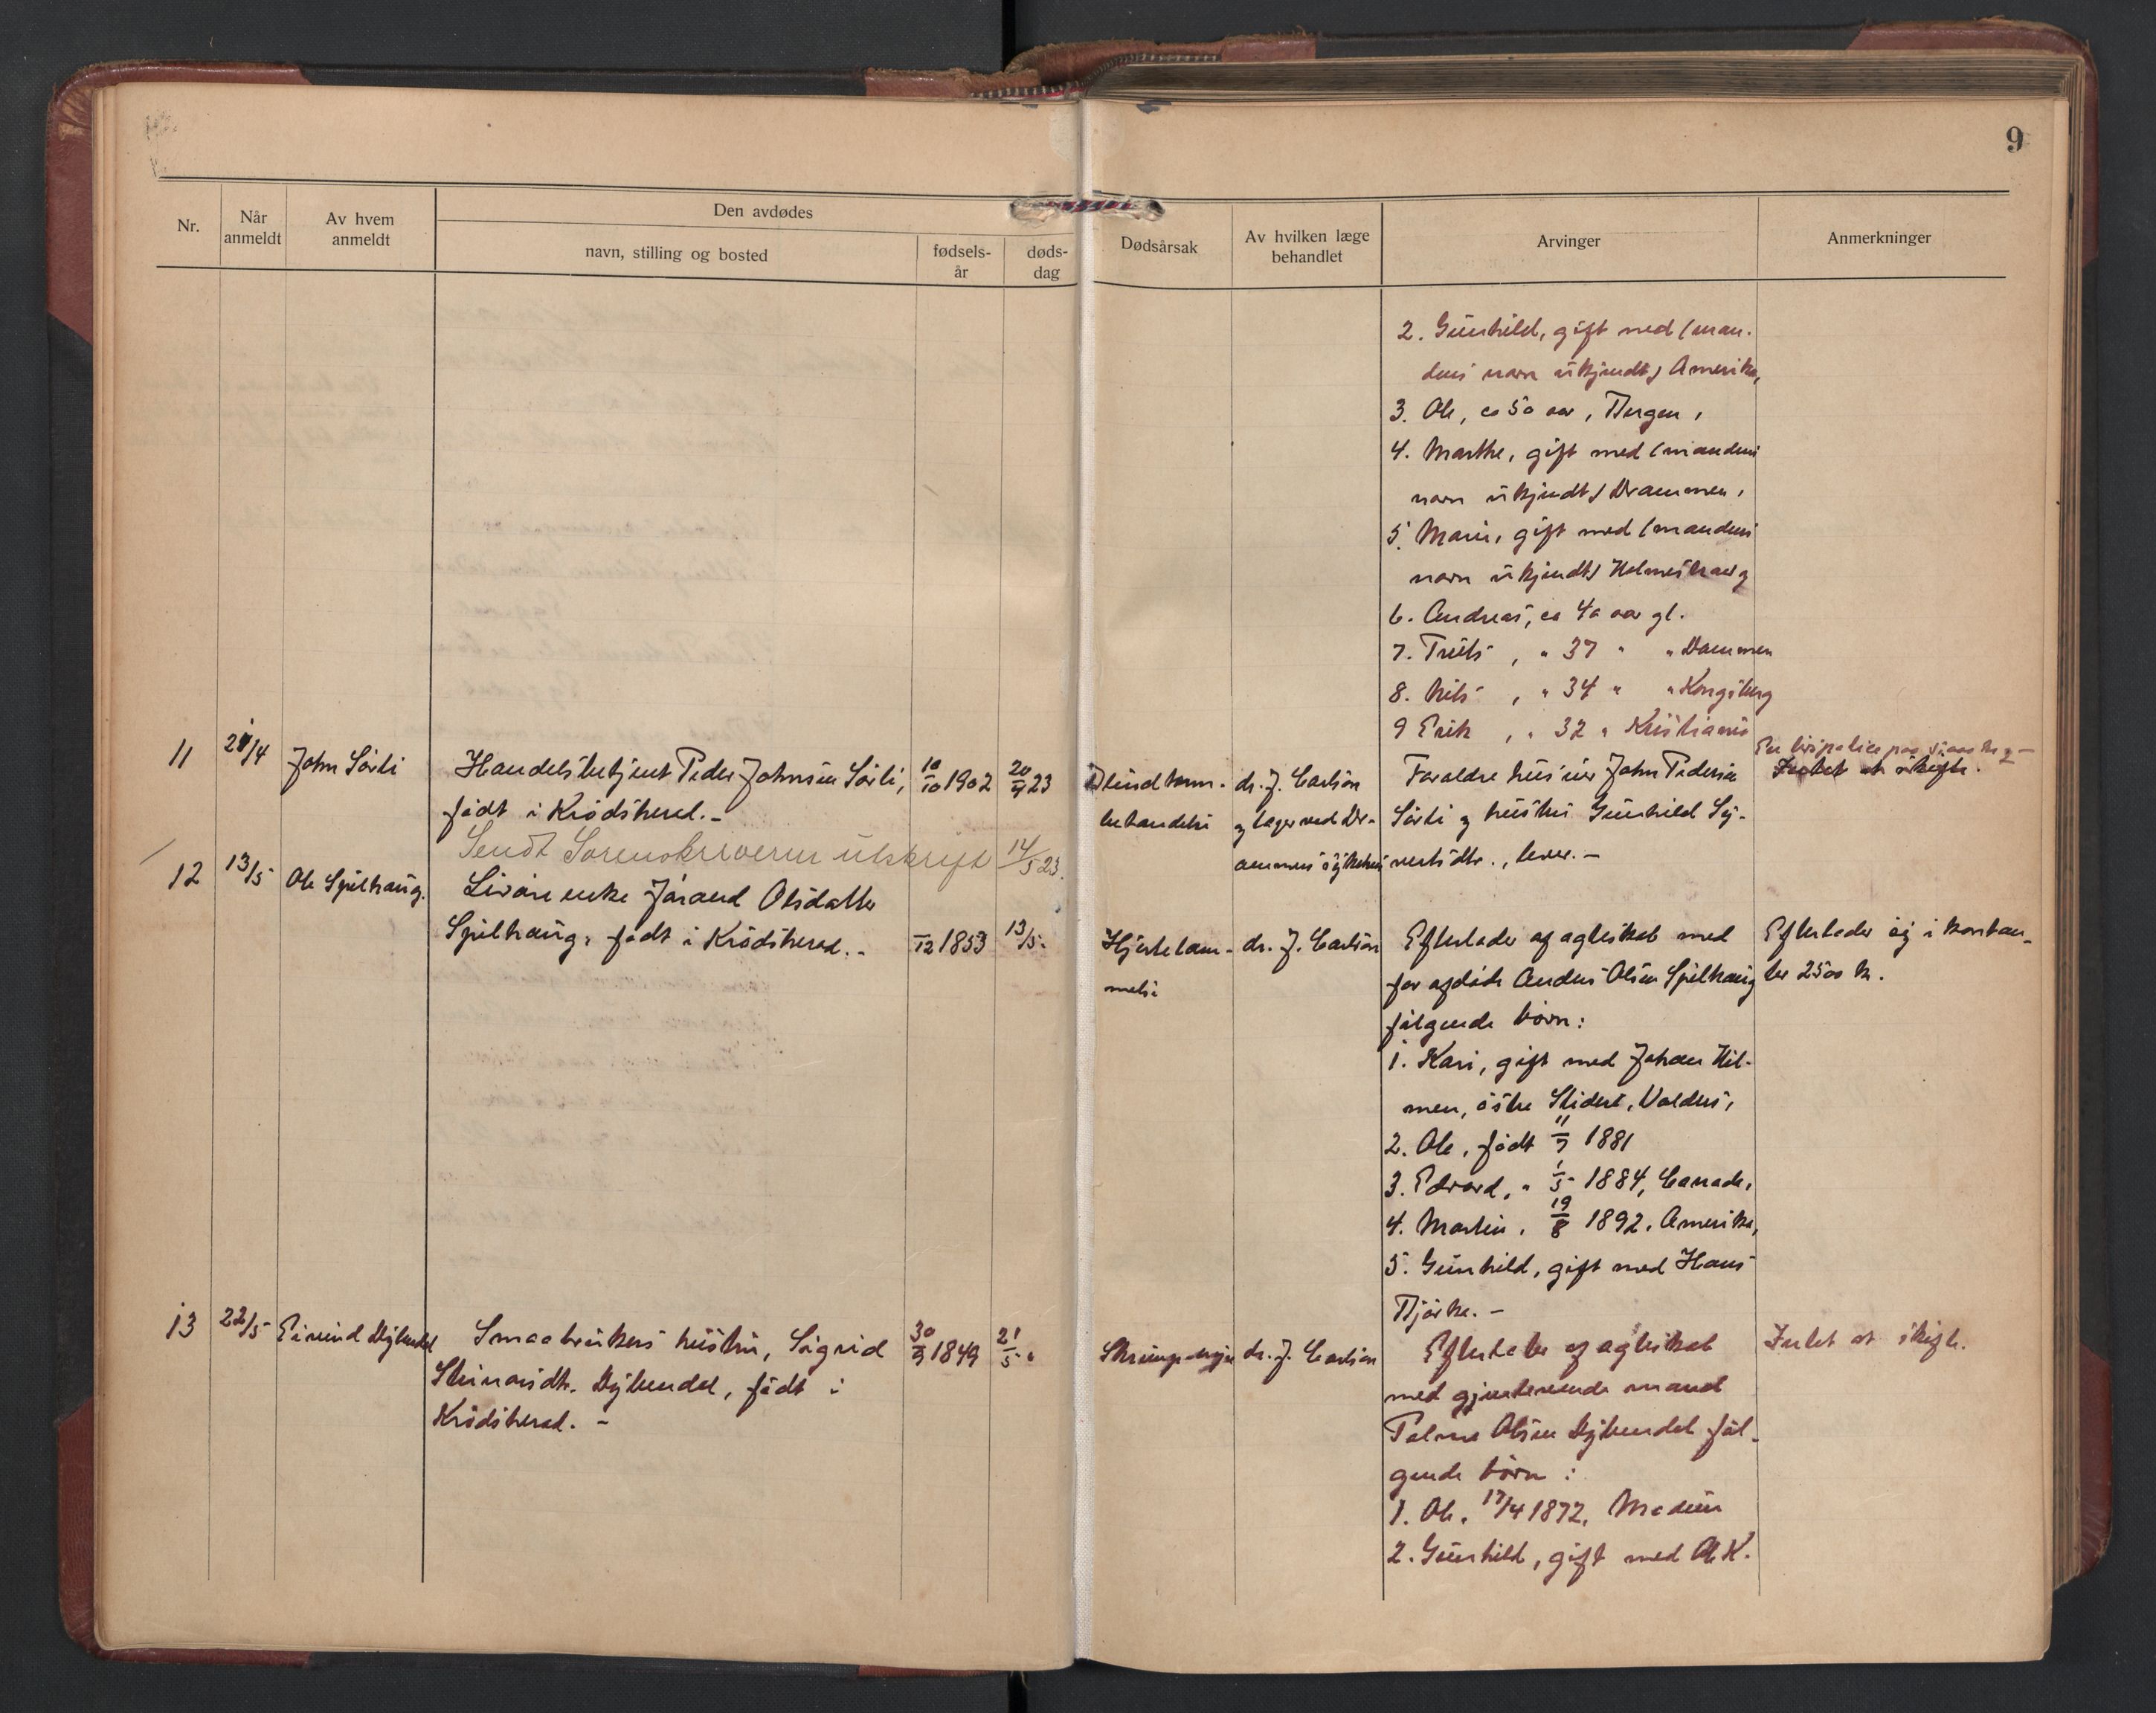 9
Nr.
Når anmeldt
Av hvem anmeldt
Den avdødes
navn, stilling og bosted
fødsels-år
døds-dag
Dødsårsak
Av hvilken læge behandlet
Arvinger
Anmerkninger
2. Gunhild, gift med (man-
dens navn ukjendt) Amerika,
3. Ole, ca 50 aar, Bergen,
4. Marthe, gift med (mandens
navn ukjendt) Drammen,
5. Marie, gift med (mandens
navn ukjendt) Holmestrand
6. Andreas, ca 40 aar gl.
7. Truls, " 37 " " Dammen
8. Nils, " 34 " " Kongsberg
9 Erik, " 32 " Kristiania
11
21/4
John Sørli
Handelsbetjent Peder Johnsen Sørli,
født i Krødsherad. -
10/10 1902
20/4 23
Blindtarm-
betændelse
dr. J. Carlson
og læger ved Dr-
ammens sykehus
Foræld­re hus­eier John Pedersen
Sørli og hustru Gunhild Sy-
vertsdtr., lever. -
En livspolice paa kr
Intet at skifte.
Sendt Sorenskriveren utskrift 14/5 23.
12
13/5
Ole Spilhaug.
Livøre enke Jørand Olsdatter
Spilhaug, født i Krødsherad. -
/12 1853
13/5
Hjertelam-
melse
dr. J. Carlson
Efterlader af egteskab med
før afdøde Anders Olsen Spilhaug
følgende børn:
1. Kari, gift med Johan Hil-
men, østre Slidre, Valdres,
2. Ole, født 11/7 1881
3. Edvard, " 1/5 1884, Canada,
4. Martin, 19/8 1892, Amerika,
5. Gunhild, gift med Hans
Bjørke. -
Efterlader sig i kontan-
ter 2500 kr.
13
22/5
Eivind Dybendal
Smaabrukers hustru, Sigrid
Steinarsdtr. Dybendal, født i
Krødsherad. -
30/9 1849
21/5 "
Skrumpnyre
dr. J. Carlson
Efterlader af egteskab
med gjenlevende mand
Palme Olsen Dybendal føl-
gende børn:
1. Ole, 17/4 1872, Modum
2. Gunhild, gift med Ole K.
Intet at skifte.